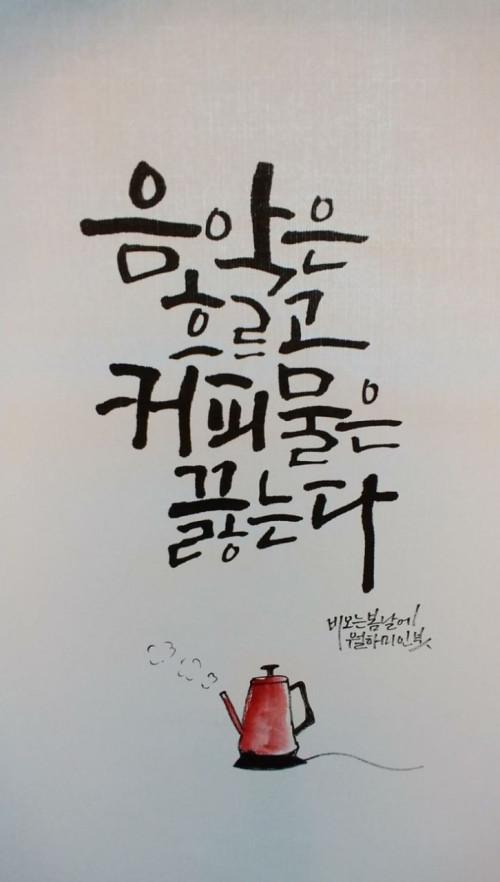 음악은
흐르고
커피물은
끓는다
비오는봄날에
월하미인붓